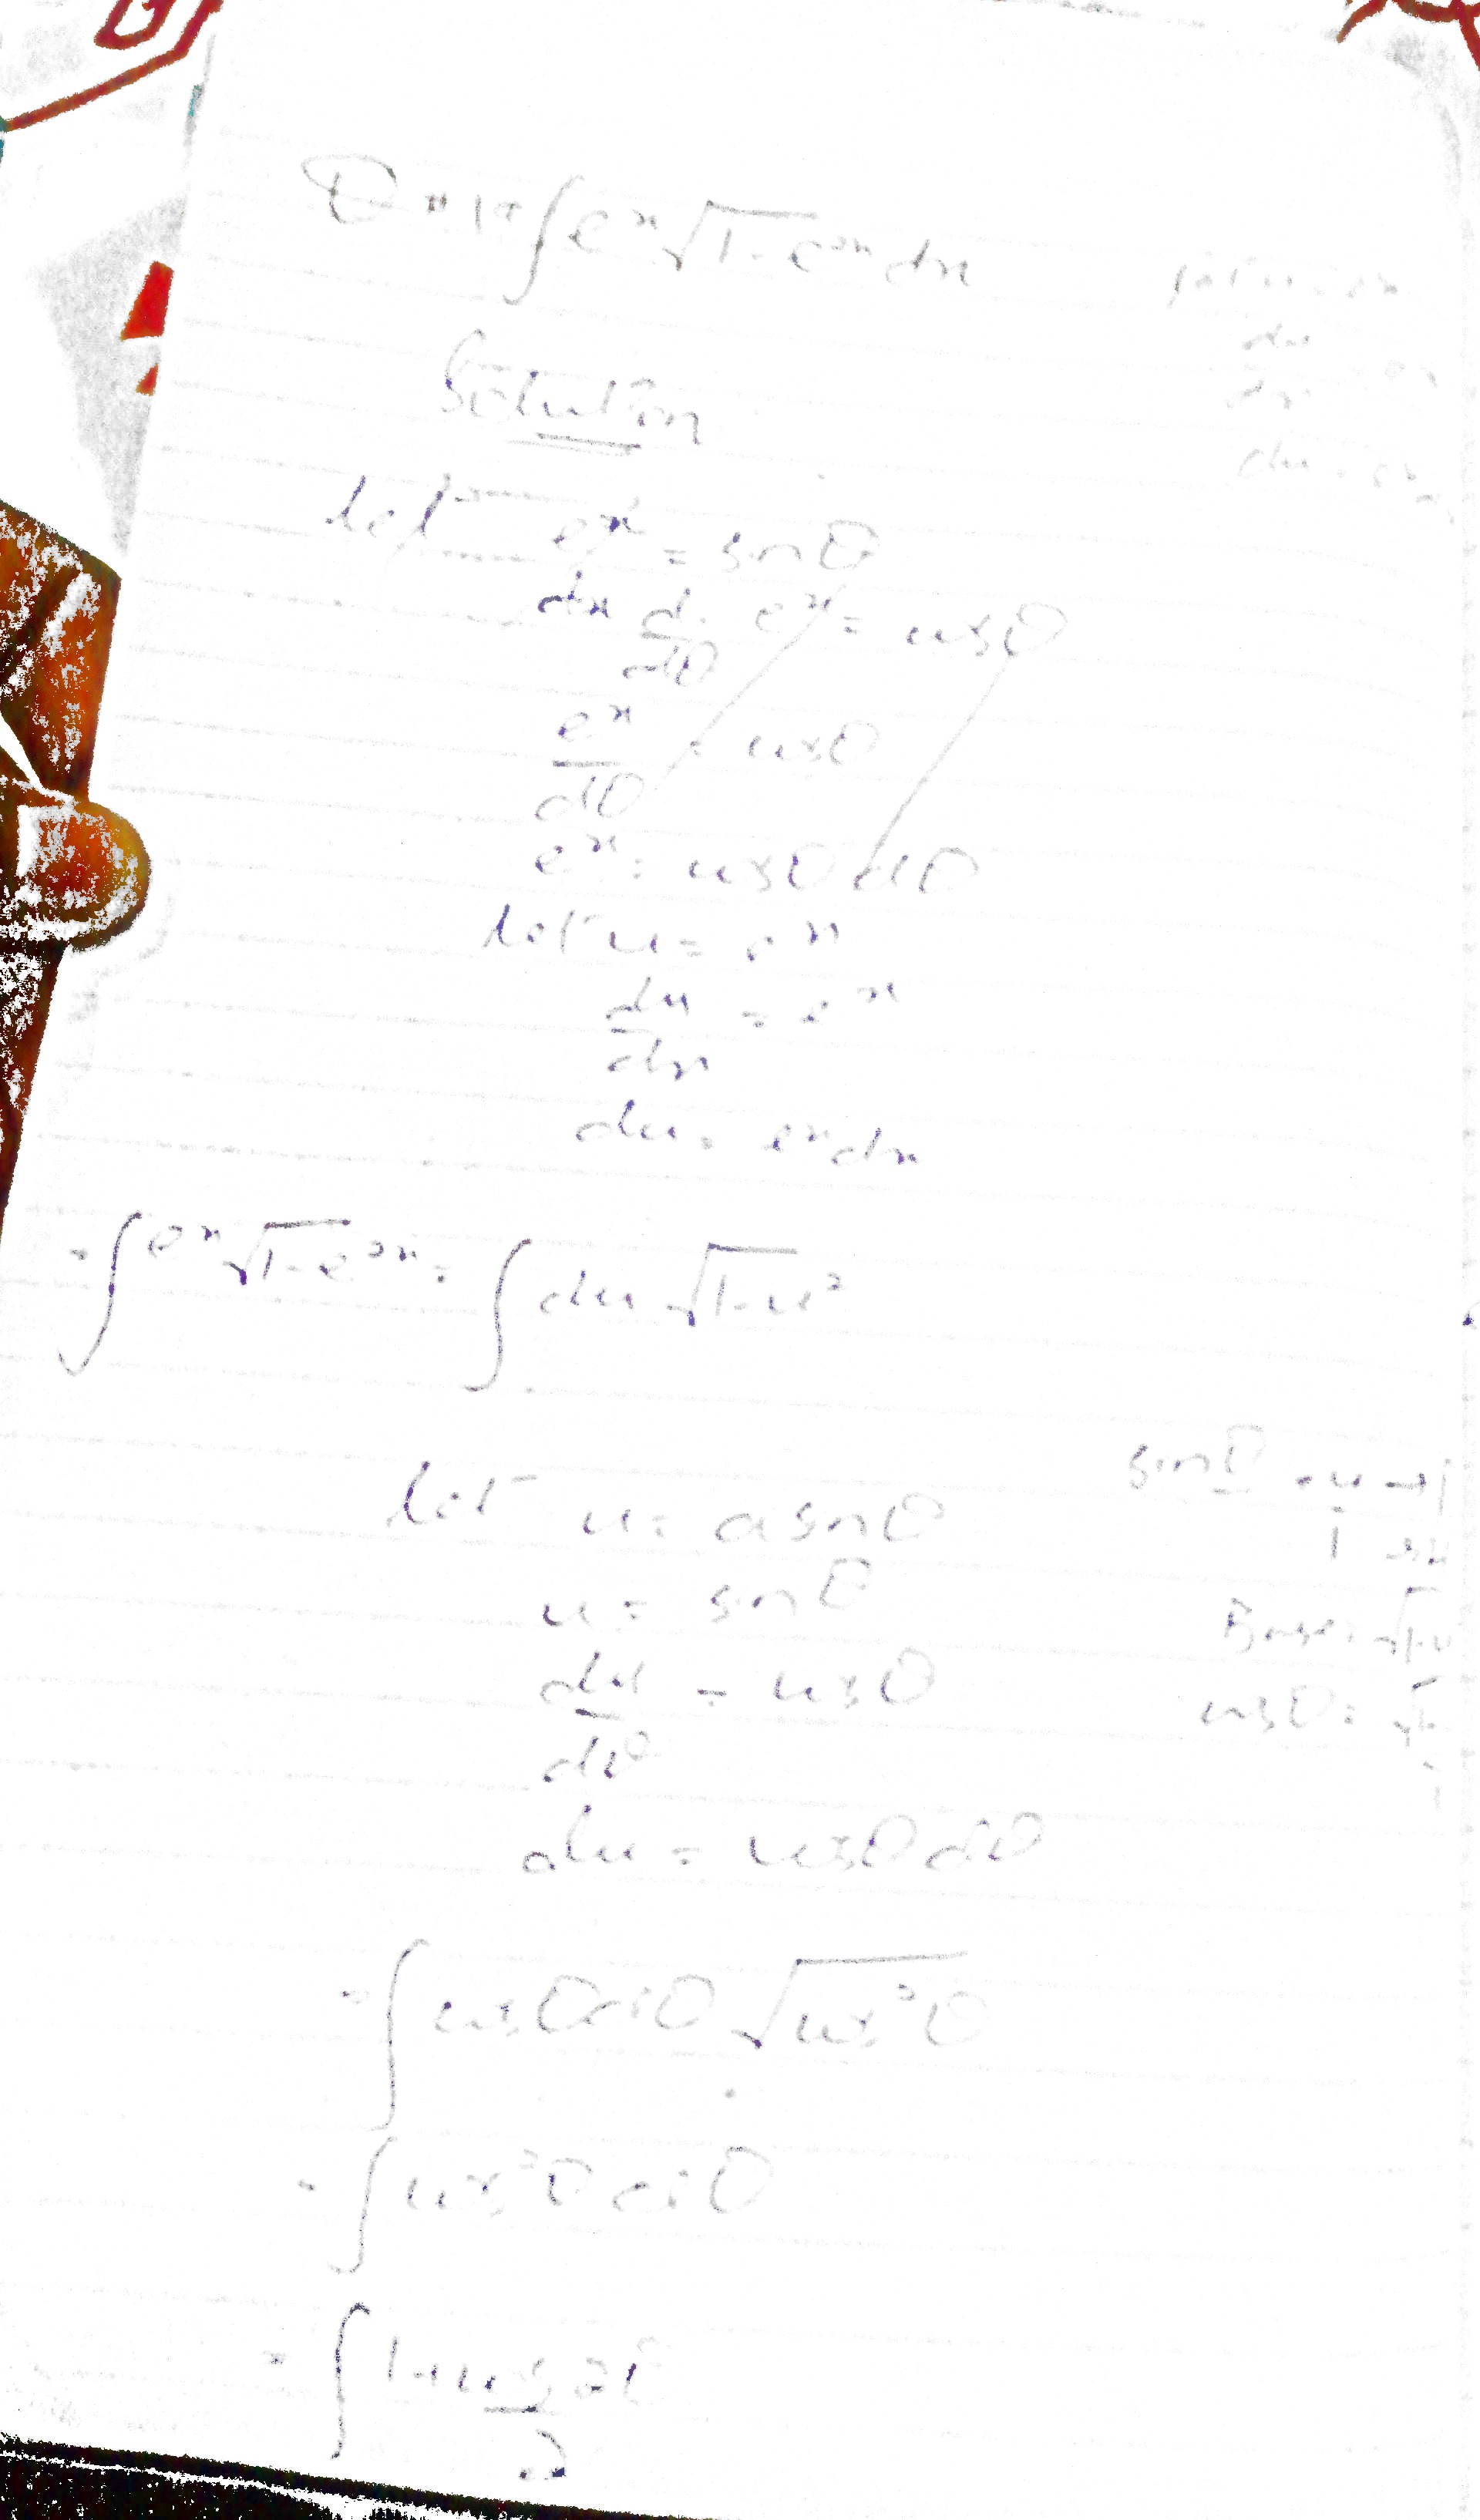 ∫e^x √1-e^2x dx
Solution
let e^x = sinθ
dx d/dθ e^x = cosθ
e^x/dθ = cosθ
e^x = cosθ dθ
let u = e^x
du/dx = e^x
du = e^x dx
= ∫e^x √1-e^2x = ∫du √1-u^2
let u = a sinθ
u = sinθ
du/dθ = cosθ
du = cosθ dθ
= ∫cosθ dθ √cos^2θ
= ∫cos^2θ dθ
= ∫1+cos2θ/2
sinθ = u/1
Base = √1-u
cosθ =